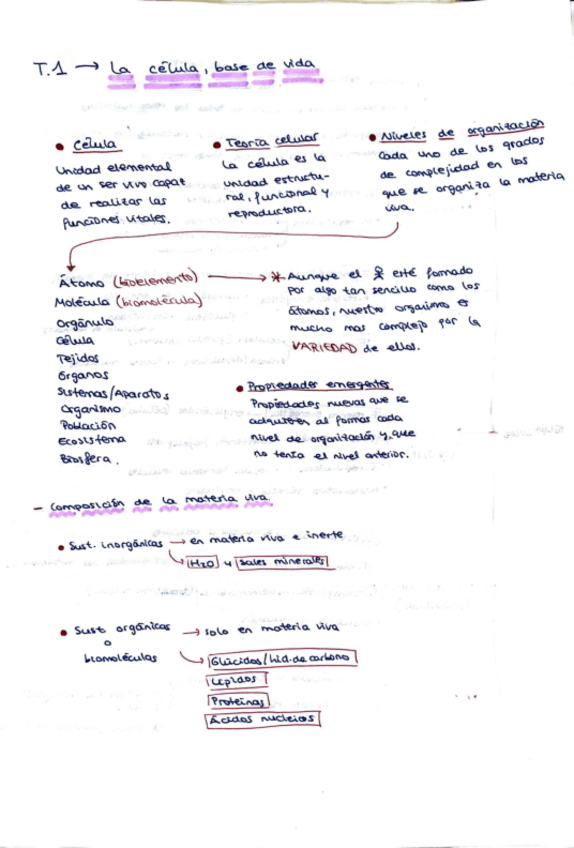 T.1 → La célula, base de vida
• Célula
Unidad elemental
de un ser vivo capaz
de realizar las
funciones vitales.
• Teoría celular
La célula es la
unidad estructu-
ral, funcional y
reproductora.
• Niveles de organización
Cada uno de los grados
de complejidad en los
que se organiza la materia
viva.
Átomo (bioelemento)
Molécula (biomolécula)
Orgánulo
Célula
Tejidos
Órganos
Sistemas/Aparatos
Organismo
Población
Ecosistema
Biosfera.
* Aunque el esté formado
por algo tan sencillo como los
átomos, nuestro organismo es
mucho mas complejo por la
VARIEDAD de ellos.
• Propiedades emergentes
Propiedades nuevas que se
adquieren al formar cada
nivel de organización y que
no tenía el nivel anterior.
- Composición de la materia viva
• Sust. inorgánicas → en materia viva e inerte
H2O y sales minerales
• Sust. orgánicas → solo en materia viva
o
biomoléculas
Glúcidos/hid. de carbono
Lípidos
Proteínas
Ácidos nucleicos